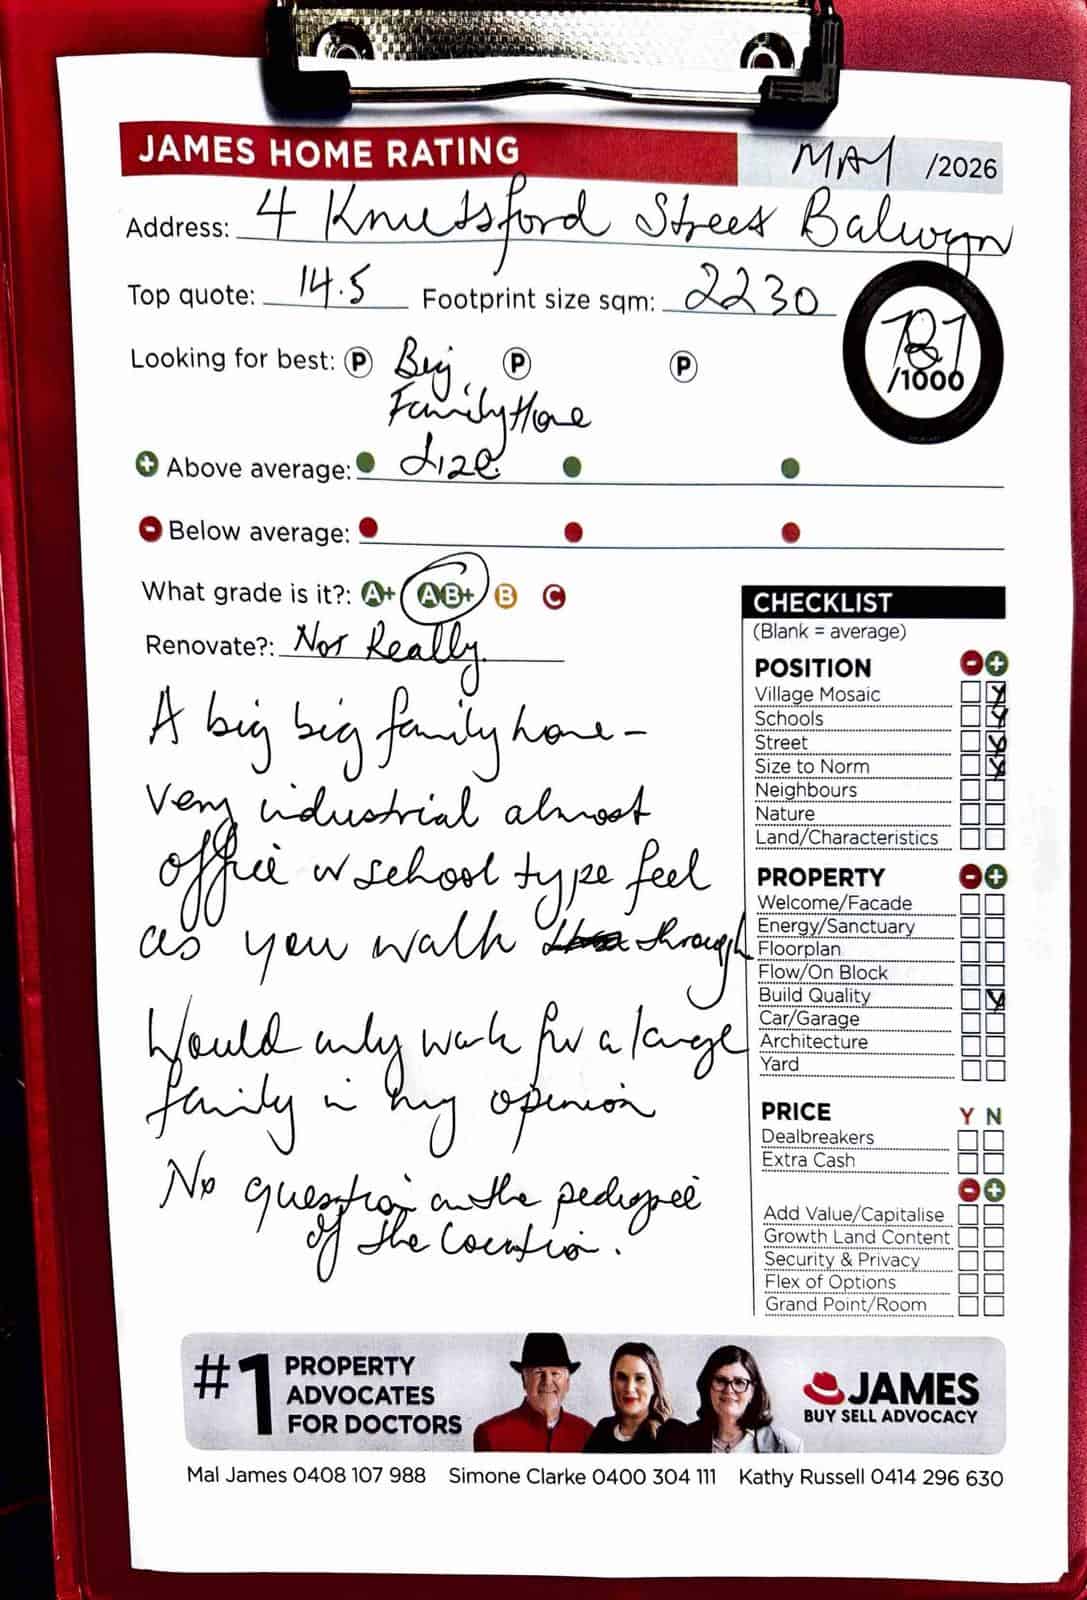 JAMES HOME RATING
MAY /2026
Address: 4 Knutsford Street Balwyn
Top quote: 14.5 Footprint size sqm: 2230
787
/1000
Looking for best: P Big P P
Family Home
Above average: Size
Below average:
What grade is it?: A+ AB+ B C
Renovate?: Not Really.
A big big family home –
very industrial almost
office or school type feel
as you walk through
Would only work for a large
family in my opinion
No question on the pedigree
of the location.
CHECKLIST
(Blank = average)
POSITION - +
Village Mosaic
Schools
Street
Size to Norm
Neighbours
Nature
Land/Characteristics
PROPERTY - +
Welcome/Facade
Energy/Sanctuary
Floorplan
Flow/On Block
Build Quality
Car/Garage
Architecture
Yard
PRICE Y N
Dealbreakers
Extra Cash
- +
Add Value/Capitalise
Growth Land Content
Security & Privacy
Flex of Options
Grand Point/Room
#1 PROPERTY
ADVOCATES
FOR DOCTORS
JAMES
BUY SELL ADVOCACY
Mal James 0408 107 988 Simone Clarke 0400 304 111 Kathy Russell 0414 296 630